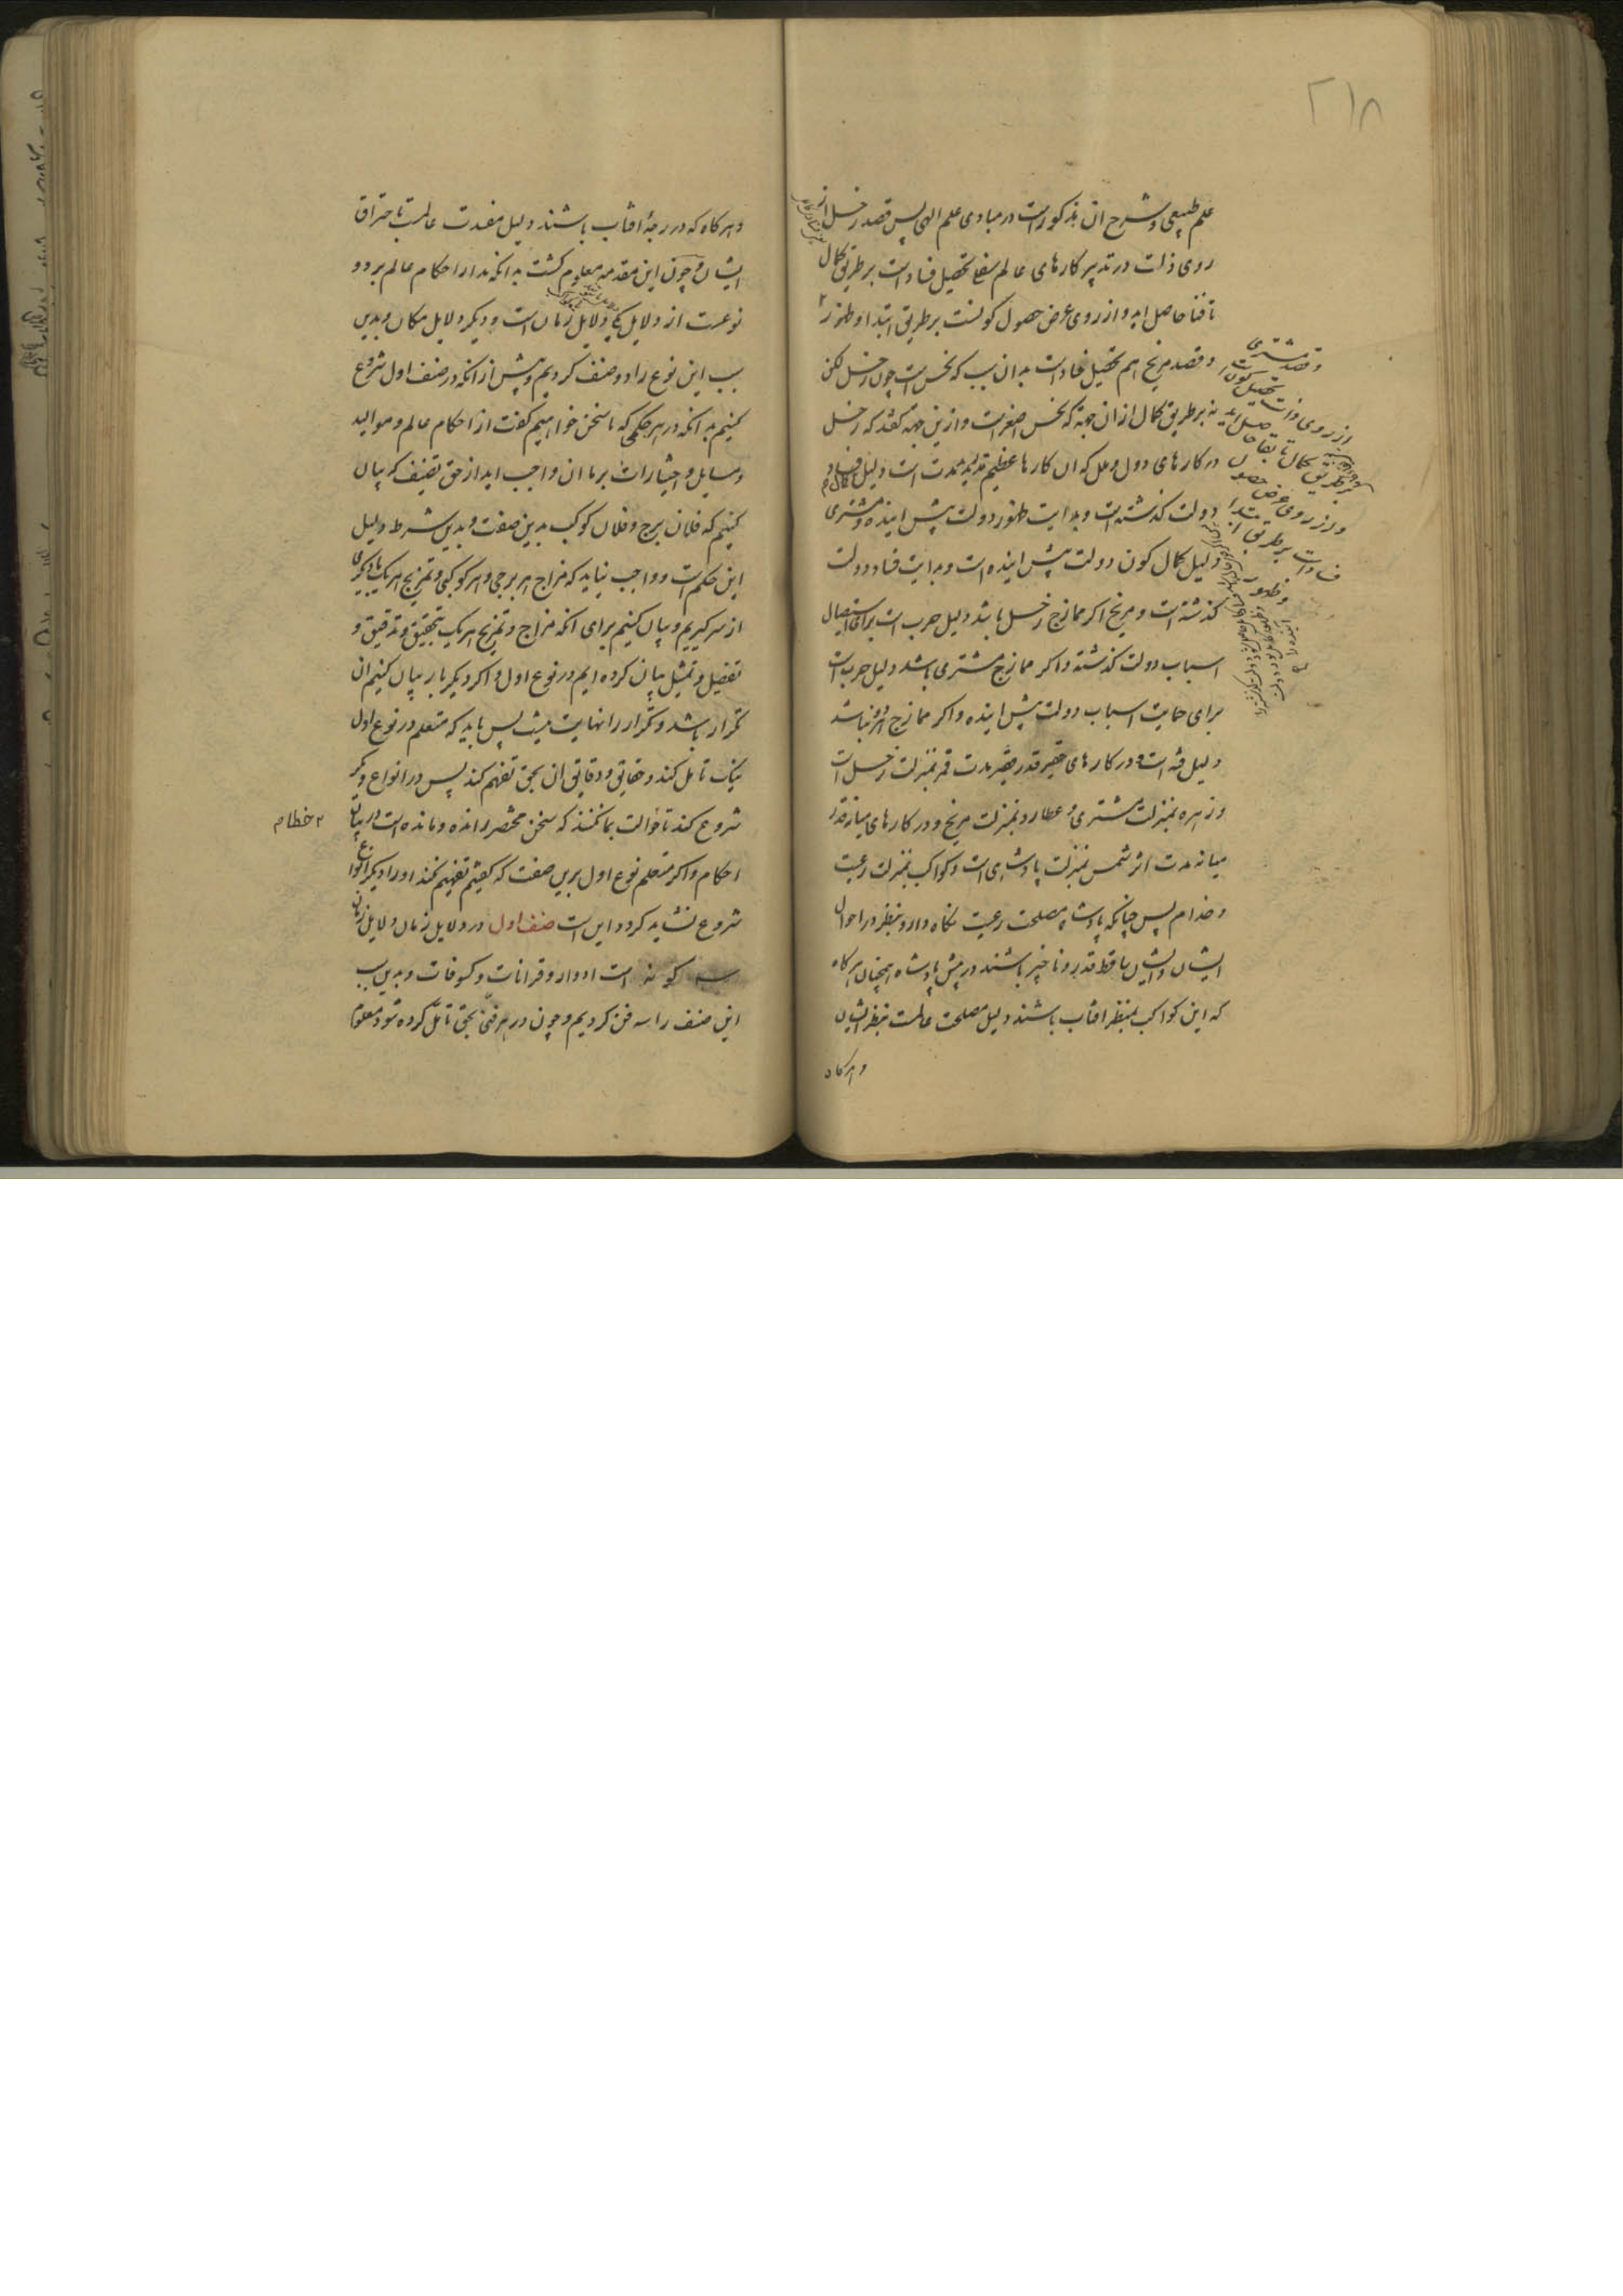 ۲۱۸
علم طبیعی و شرح ان مذکورست در مبادی علم الهی پس قصد زحل از
روی ذات در تدبیر کارهای عالم سفلی تحصیل فسادست بر طریق کمال
تا فنا حاصل اید و از روی عرض حصول کونست بر طریق ابتدا و ظهور
و قصد مشتری
از روی ذات تحصیل کون است
بر طریق کمال تا بقا حاصل اید
و از روی عرض حصول
فسادست بر طریق ابتداء
و ظهور
و قصد مریخ هم تحصیل فسادست بدان سبب که نحس است چون زحل لکن
نه بر طریق کمال از ان جهة که نحس اصغرست و ازین جهة گفتند که زحل
در کارهای دول و ملل که ان کارها عظیم قدر مدیده مدت است دلیل فساد و کمال
دولت کذشته است و بدایت ظهور دولت پیش اینده و مشتری
دلیل کمال کون دولت پیش اینده است و بدایت فساد دولت
کذشته است و مریخ اکر ممازج زحل باشد دلیل حرب است برای استیصال
اسباب دولت کذشته و اکر ممازج مشتری باشد دلیل حرب است
برای حمایت اسباب دولت پیش اینده و اکر ممازج هر دو باشد
دلیل فتنه است و در کارهای حقیر قدر قصیر مدت قمر بمنزلت زحل است
و زهره بمنزلت مشتری و عطارد بمنزلت مریخ و در کارهای میانه قدر
میانه مدت اثر شمس بمنزلت پادشاهی است و کواکب بمنزلت رعیت
و خدام پس چنانکه پادشاه مصلحت رعیت نکاه دارد بنظر در احوال
ایشان و ایشان ساقط قدر و ناچیز باشند در پیش پادشاه همچنان هرکاه
که این کواکب بمنظر افتاب باشند دلیل مصلحت عالمست بنظر ایشان
و هرکاه
و هرکاه که در درجهٔ افتاب باشند دلیل مفسدت عالمست باحتراق
ایشان و چون این مقدمه معلوم کشت بدانکه مدار احکام عالم بر دو
نوعست از دلایل یکی دلایل زمان است و دیکر دلایل مکان و بدین
سبب این نوع را دو صنف کردیم و پیش از انکه در صنف اول شروع
کنیم بدانکه در هر حکمی که ما سخن خواهیم کفت از احکام عالم و موالید
و مسایل و اختیارات بر ما ان واجب اید از حق تصنیف که بیان
کنیم که فلان برج و فلان کوکب بدین صفت و بدین شرط دلیل
این حکم است و واجب نیاید که مزاج هر برجی و هر کوکبی و تمزیج هر یک با دیکری
از سر کیریم و بیان کنیم برای انکه مزاج و تمزیج هر یک بتحقیق و تدقیق و
تفصیل و تمثیل بیان کرده ایم در نوع اول و اکر دیکر بار بیان کنیم ان
تکرار باشد و تکرار را نهایت نیست پس باید که متعلم در نوع اول
نیک تامل کند و حقایق و دقایق ان بحق تفهم کند پس در انواع دیکر
شروع کند تا حوالت بما نکنند که سخن مختصر رانده و نامانده است در بیان
۲ خطا م
احکام و اکر متعلم نوع اول برین صفت که کفتیم تفهیم نکند او را در دیکر انواع
شروع نشاید کرد و این است صنف اول در دلایل زمان دلایل زمان
سه کونه است ادوار و قرانات و کسوفات و بدین سبب
این صنف را سه فن کردیم و چون در هر فنی بحق تامل کرده شود معلوم